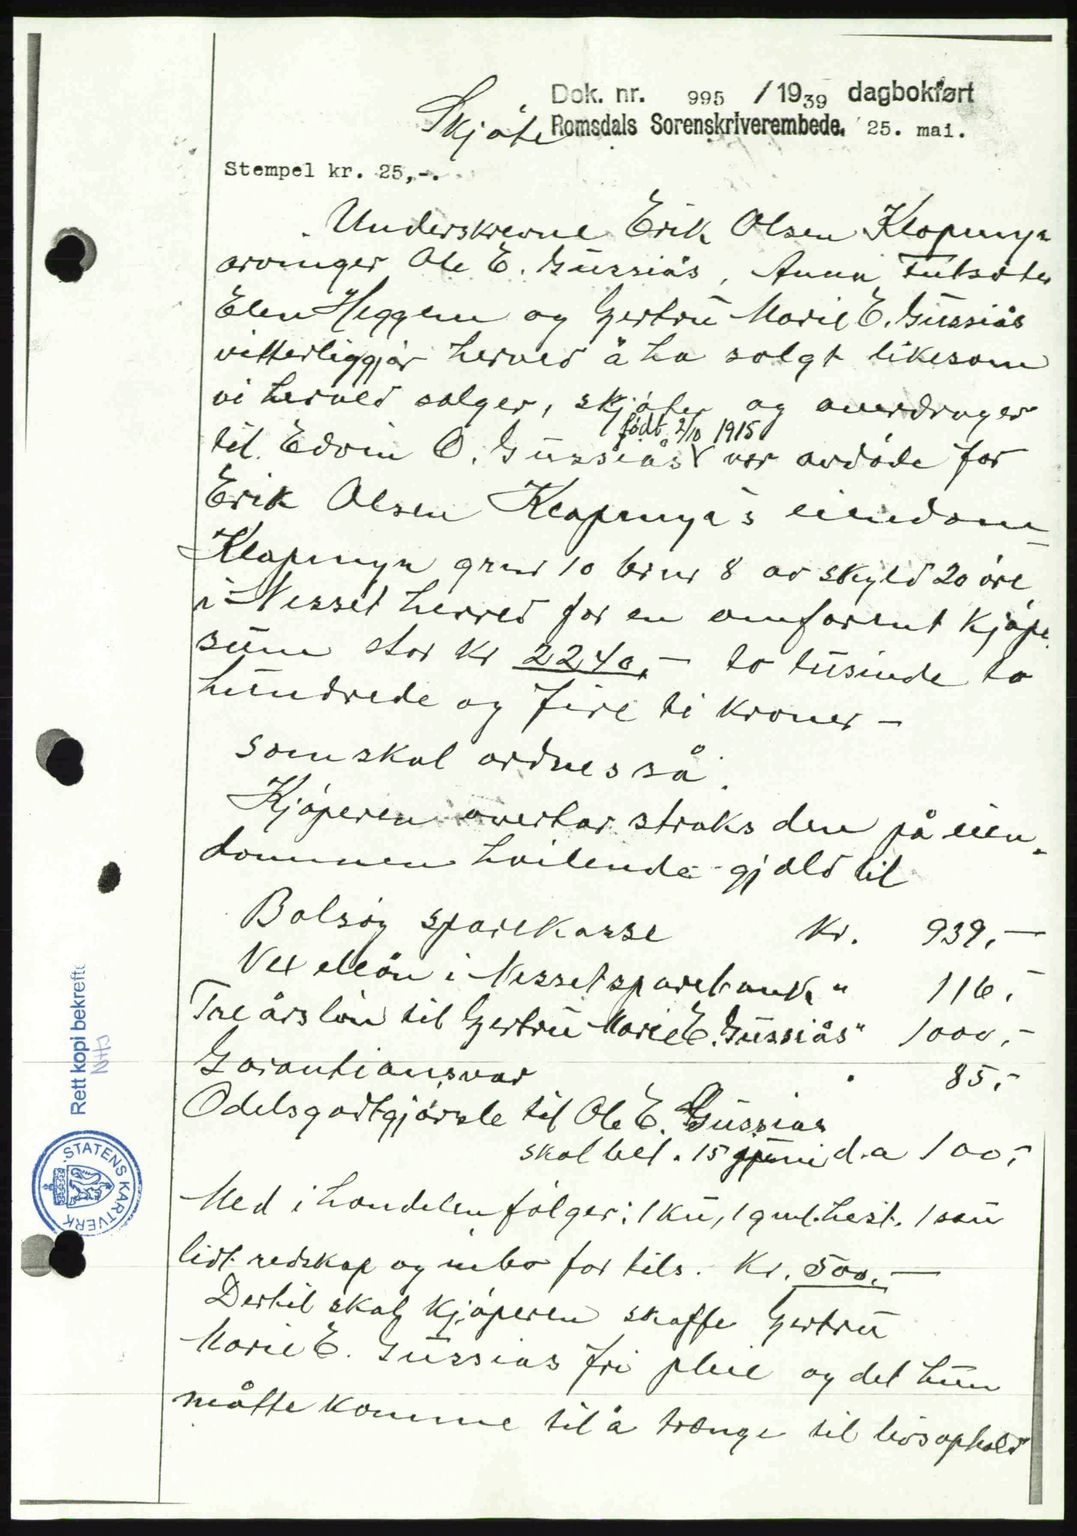 Dok. nr. 995 / 1939 dagbokført
Skjøte Romsdals Sorenskriverembede. 25. mai.
Stempel kr. 25,-.
Underskrevne Erik Olsen Klopmyr
arvinger Ole E. Gussiås, Anna
Elen Heggem og Gertru Marie E. Gussiås
vitterliggjør herved å ha solgt likesom
vi herved selger, skjøter og overdrager
født 2/10 1915
til Edvin O. Gussiås vor avdøde far
Erik Olsen Klopmyr's eiendom
Klopmyr grnr 10 brnr 8 av skyld 20 øre
i Nesset herred for en omforent kjøpe
sum stor kr 2240,- to tusinde to
hundrede og fire ti kroner -
som skal ordnes så.
Kjøperen overtar straks den på eien-
dommen hvilende gjæld til
Bolsøy sparekasse kr. 939,-
Vexellån i Nesset sparebank " 116,-
Tre årsløn til Gertru Marie E. Gussiås " 1000,-
Garantiansvar " 85,-
Odelsgodtgjørelse til Ole E. Gussias
skal bet. 15 juni d.a 100,-
Med i handelen følger: 1 ku, 1 gml. hest. 1 sau
lidt redskap og inbo for tils. Kr. 500,-
Dertil skal kjøperen skaffe Gertru
Marie E. Gussias fri pleie og det hun
måtte komme til å trænge til livsophold
Rett kopi bekreftes
STATENS KARTVERK